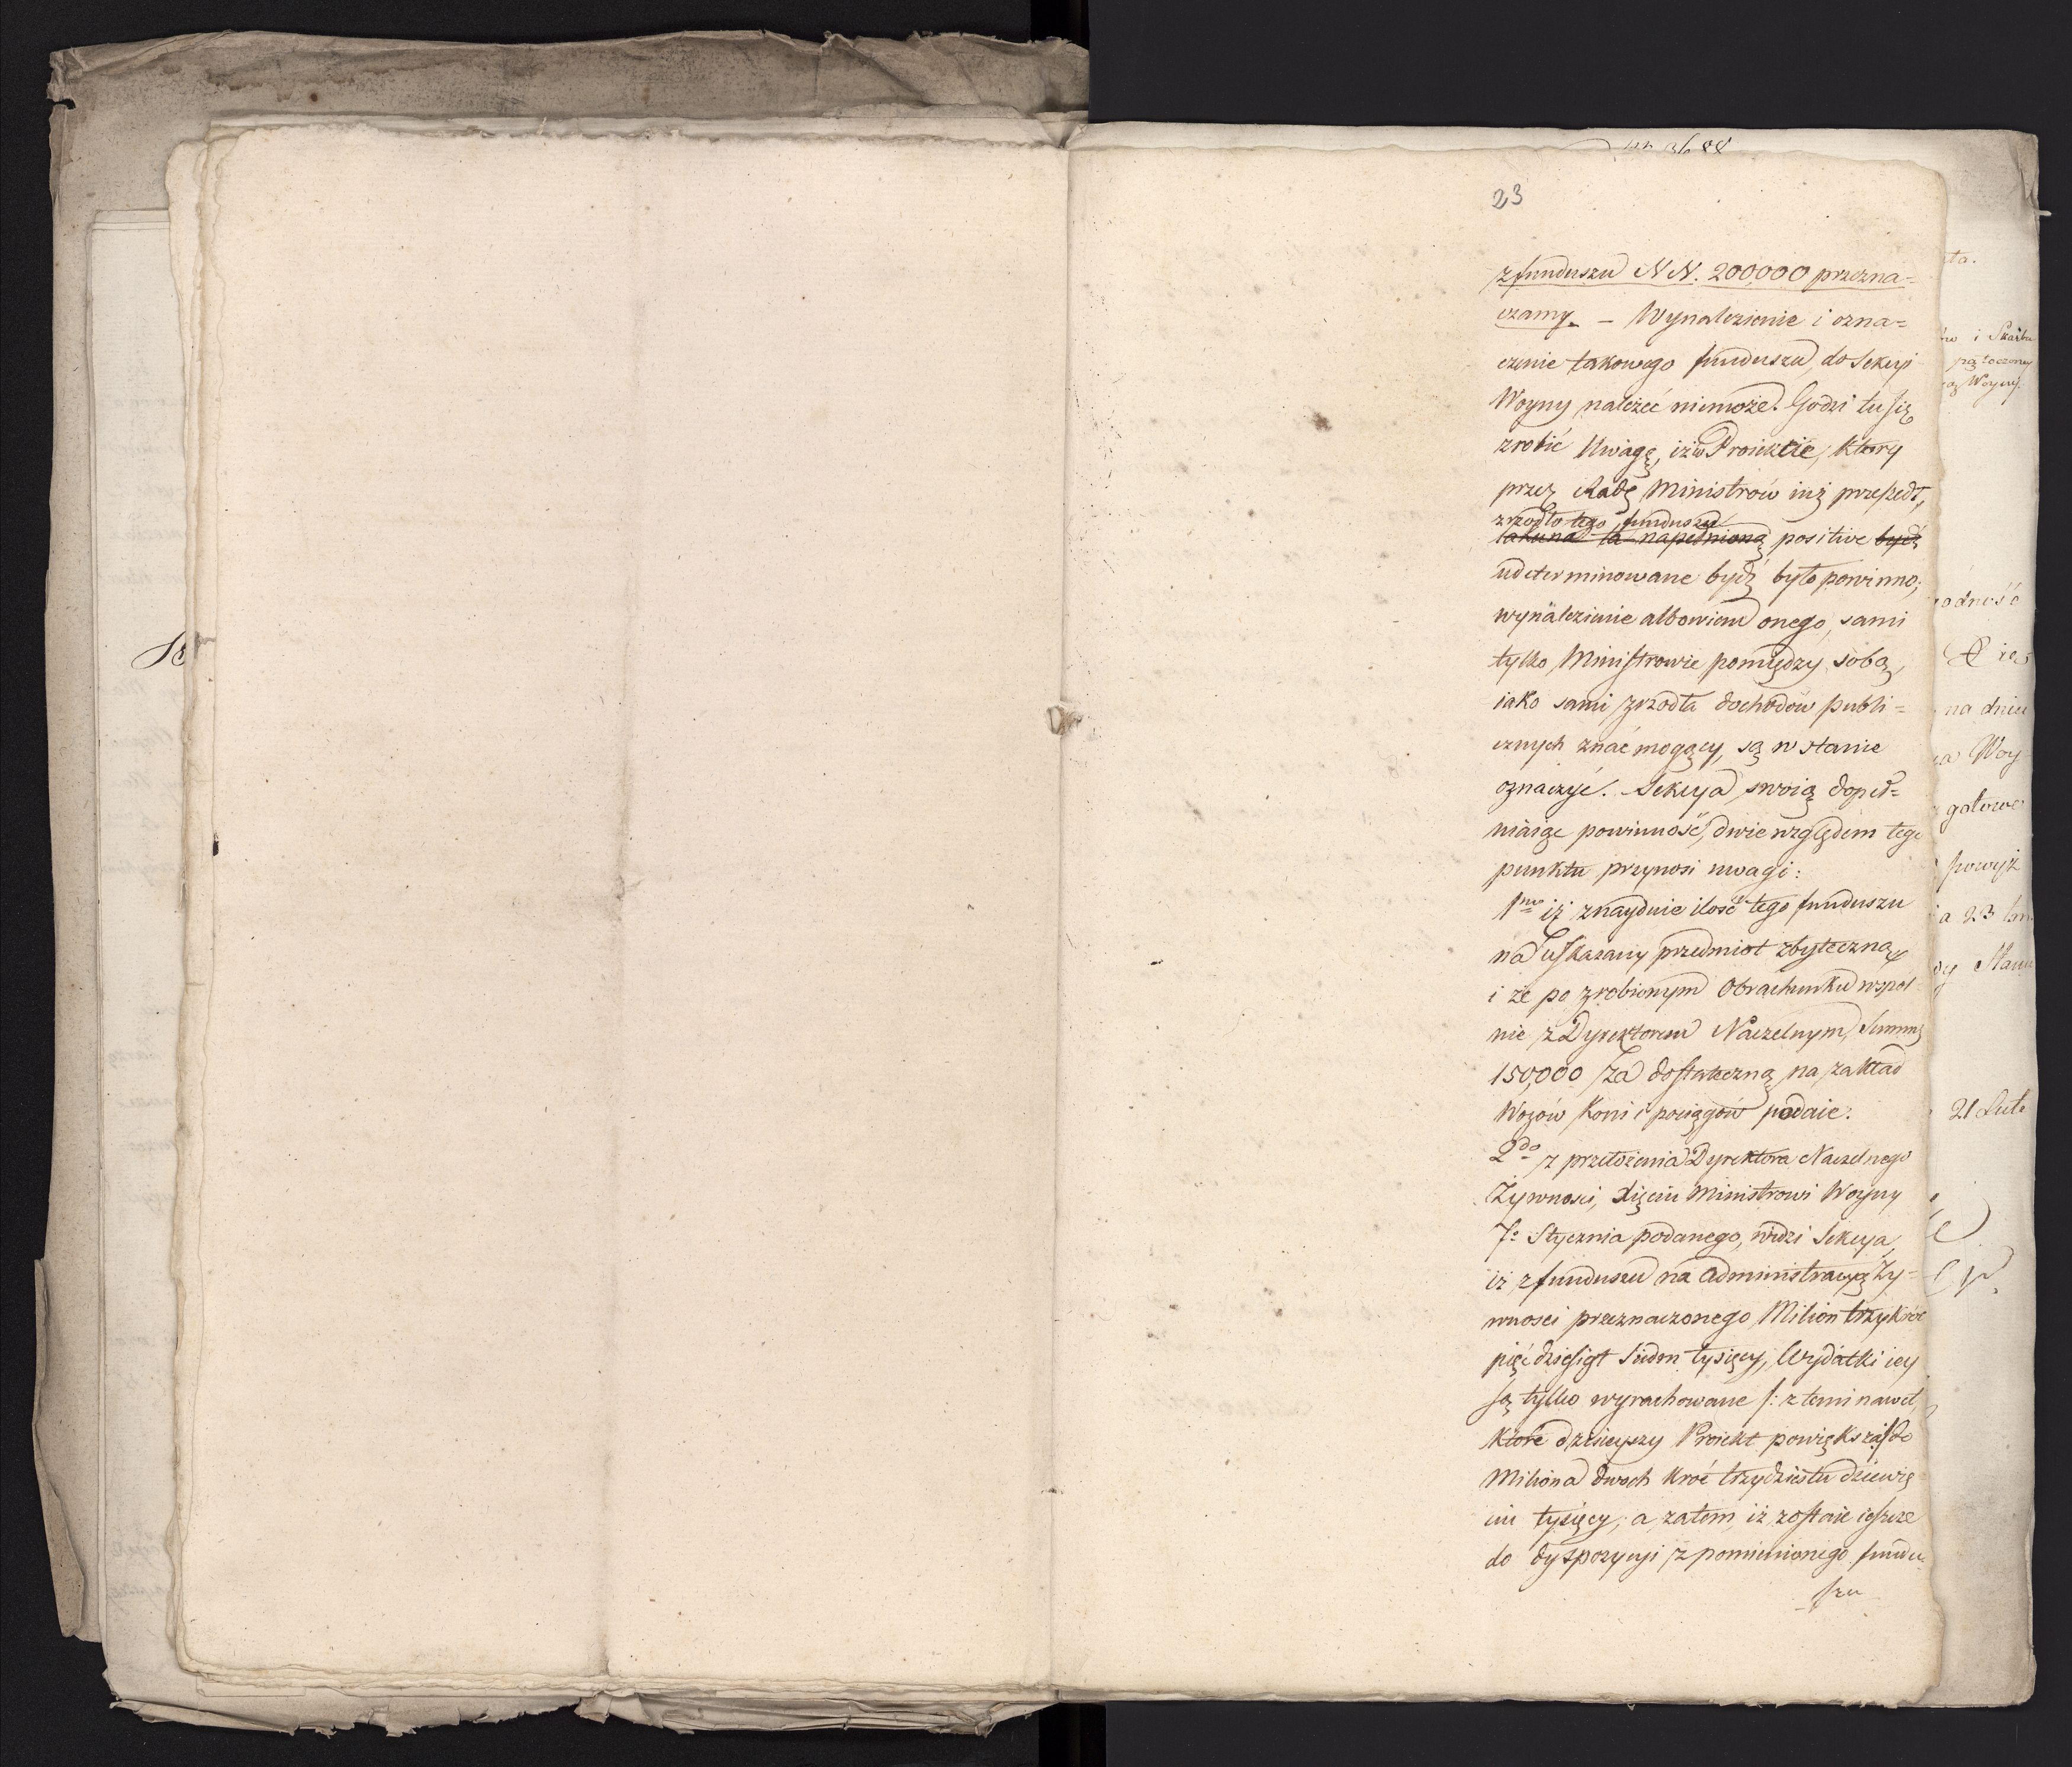 23
z funduszu N N. 200,000 przezna=
czamy. – Wynalezienie i ozna=
czenie takowego funduszu, do Sekcyi
Woyny należeć niemoże. Godzi tu się
zrobić Uwagę, iż w Proiekcie, który
przez Radę Ministrów iuż przeszedł,
zrzodło tego funduszu
lakuna ta napełnioną positive bydź
udeterminowane bydź było powinno;
wynalezienie albowiem onego, sami
tylko Ministrowie pomiędzy sobą,
iako sami zrzodła dochodów publi=
cznych znać mogący, są w stanie
oznaczyć. Sekcya swoią dopeł=
niaiąc powinność, dwie względem tego
punktu przynosi uwagi:
1mo iż znayduie ilość tego funduszu
na uskazany przedmiot zbyteczną,
i że po zrobionym Obrachunku wspol
nie z Dyrektorem Naczelnym, Summę
150,000 za dostateczną na zakład
Wozów Koni i pociągów podaie.
2do z przełożenia Dyrektora Naczelnego
Żywnosci, Xięciu Ministrowi Woyny
7o Stycznia podanego, widzi Sekcya,
iż z funduszu na Administracyą Ży=
wnosci przeznaczonego Milion trzykroć
pięćdziesiąt siedm tysięcy, Wydatki iey
są tylko wyrachowane /: z temi nawet,
które dzisieyszy Proiekt powiększa :/ do
Miliona dwoch kroć trzydziestu dziewię
ciu tysięcy; a zatem, iż zostaie ieszcze
do dyspozycyi z pomienionego fundu-
szu
ta.
i Skarbu
Woyny.
na dniu
Woy
gotowe
powyż
a 23
Stanu
21 Lute